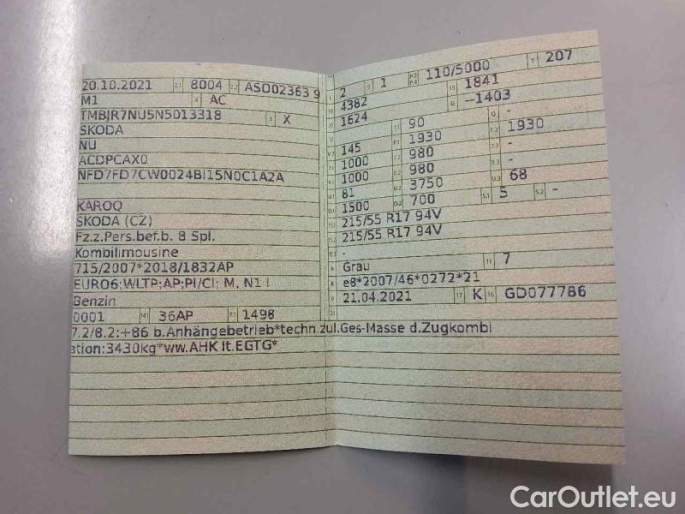 20.10.2021 8004 ASO02363 9
M1 AC
TMBJR7NU5N5013318 X
SKODA
NU
ACDPCAX0
NFD7FD7CW0024BI15N0C1A2A
KAROQ
SKODA (CZ)
Fz.z.Pers.bef.b. 8 Spl.
Kombilimousine
715/2007*2018/1832AP
EURO6;WLTP;AP;PI/CI; M, N1 I
Benzin
0001 36AP 1498
2 1 110/5000 207
4382 1841
1624 --1403
90 -
145 1930 1930
1000 980 -
1000 980 -
81 3750 68
1500 700 5 -
215/55 R17 94V
215/55 R17 94V
-
Grau 7
e8*2007/46*0272*21
21.04.2021 K GD077786
7.2/8.2:+86 b.Anhängebetrieb*techn.zul.Ges-Masse d.Zugkombi
ation:3430kg*ww.AHK lt.EGTG*
CarOutlet.eu